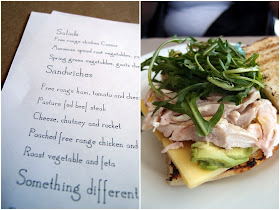 Salads
Free range chicken Caesar
Moroccan spiced root vegetables,
Spring green vegetables, goats che
Sandwiches
Free range ham, tomato and chees
Pasture fed beef steak
Cheese, chutney and rocket
Poached free range chicken and
Roast vegetable and feta
Something different